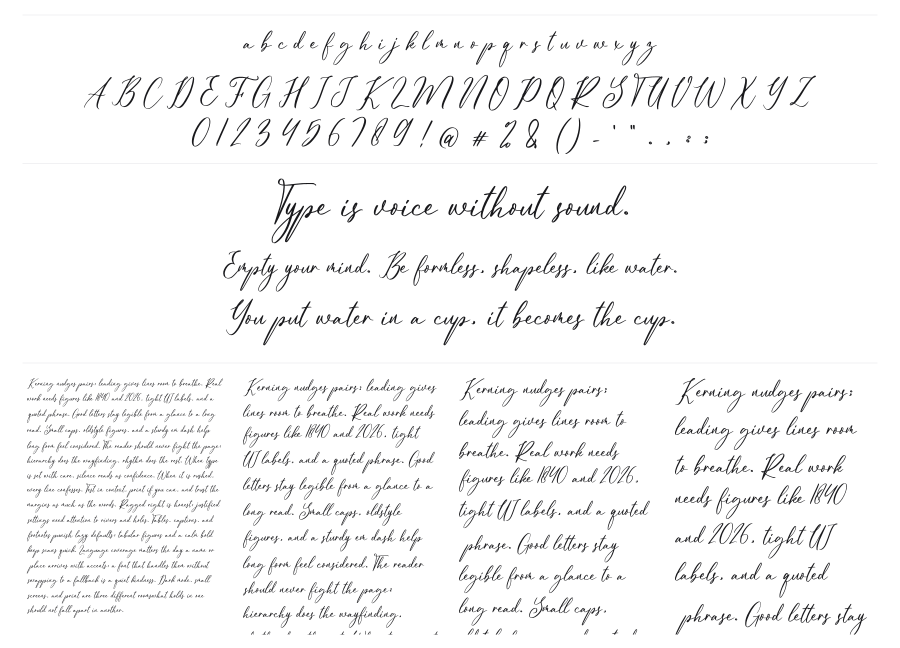 a b c d e f g h i j k l m n o p q r s t u v w x y z
A B C D E F G H I J K L M N O P Q R S T U V W X Y Z
0 1 2 3 4 5 6 7 8 9 ! @ # 2 & ( ) - ' " . , : ;
Type is voice without sound.
Empty your mind. Be formless, shapeless, like water.
You put water in a cup, it becomes the cup.
Kerning nudges pairs; leading gives lines room to breathe. Real
work needs figures like 1840 and 2026, tight UI labels, and a
quoted phrase. Good letters stay legible from a glance to a long
read. Small caps, oldstyle figures, and a sturdy em dash help
long form feel considered. The reader should never fight the page;
hierarchy does the wayfinding, rhythm does the rest. When type
is set with care, silence reads as confidence. When it is rushed,
every line confesses. Test in context, print if you can, and trust the
margins as much as the words. Ragged right is honest; justified
settings need attention to rivers and holes. Tables, captions, and
footnotes punish lazy defaults; tabular figures and a calm bold
keep scans quick. Language coverage matters the day a name or
place arrives with accents; a font that handles them without
swapping to a fallback is a quiet kindness. Dark mode, small
screens, and print are three different rooms; what holds in one
should not fall apart in another.
Kerning nudges pairs; leading gives
lines room to breathe. Real work needs
figures like 1840 and 2026, tight
UI labels, and a quoted phrase. Good
letters stay legible from a glance to a
long read. Small caps, oldstyle
figures, and a sturdy em dash help
long form feel considered. The reader
should never fight the page;
hierarchy does the wayfinding,
Kerning nudges pairs;
leading gives lines room to
breathe. Real work needs
figures like 1840 and 2026,
tight UI labels, and a quoted
phrase. Good letters stay
legible from a glance to a
long read. Small caps,
Kerning nudges pairs;
leading gives lines room
to breathe. Real work
needs figures like 1840
and 2026, tight UI
labels, and a quoted
phrase. Good letters stay